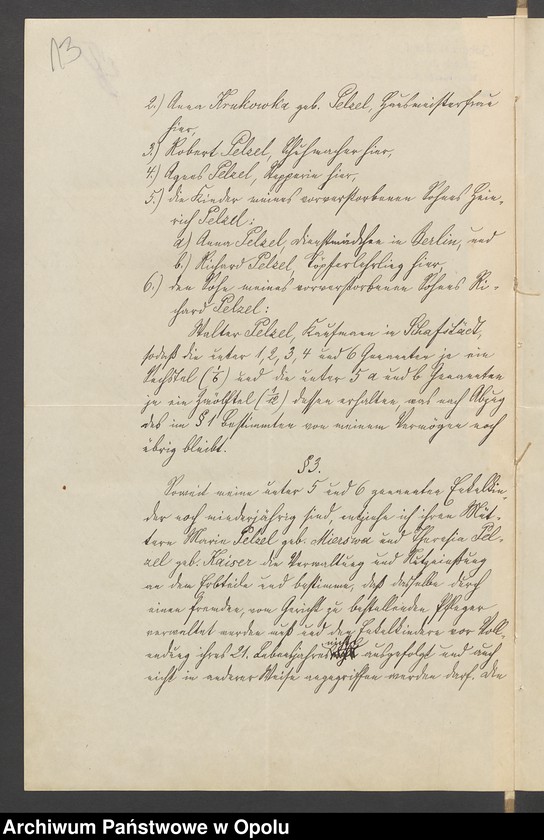 13
2.) Anna Krukowka geb. Pelzel, Hausmeisterfrau
hier,
3.) Robert Pelzel, Schuhmacher hier,
4.) Agnes Pelzel, Stepperin hier,
5.) die Kinder meines vorverstorbenen Sohnes Hein-
rich Pelzel:
a) Anna Pelzel, Dienstmädchen in Berlin, und
b.) Richard Pelzel, Töpferlehrling hier,
6.) den Sohn meines vorverstorbenen Sohnes Ri-
chard Pelzel:
Walter Pelzel, Kaufmann in Schafstädt,
sodaß die unter 1, 2, 3, 4 und 6 Genannten je ein
Sechstel (1/6) und die unter 5 a und b Genannten
je ein Zwölftel (1/12) dessen erhalten, was nach Abzug
des im § 1 Bestimmten von meinem Vermögen noch
übrig bleibt.
§ 3.
Soweit meine unter 5 und 6 genannten Enkelkin-
der noch minderjährig sind, entziehe ich ihren Müt-
tern Marie Pelzel geb. Mierswa und Theresia Pel-
zel geb. Kaiser die Verwaltung und Nutznießung
an dem Erbteile und bestimme, daß dasselbe durch
einen fremden, vom Gericht zu bestellenden Pfleger
verwaltet werden muß und den Enkelkindern vor Voll-
endung ihres 21. Lebensjahres nicht ausgefolgt und auch
nicht in anderer Weise angegriffen werden darf. Die
Archiwum Państwowe w Opolu